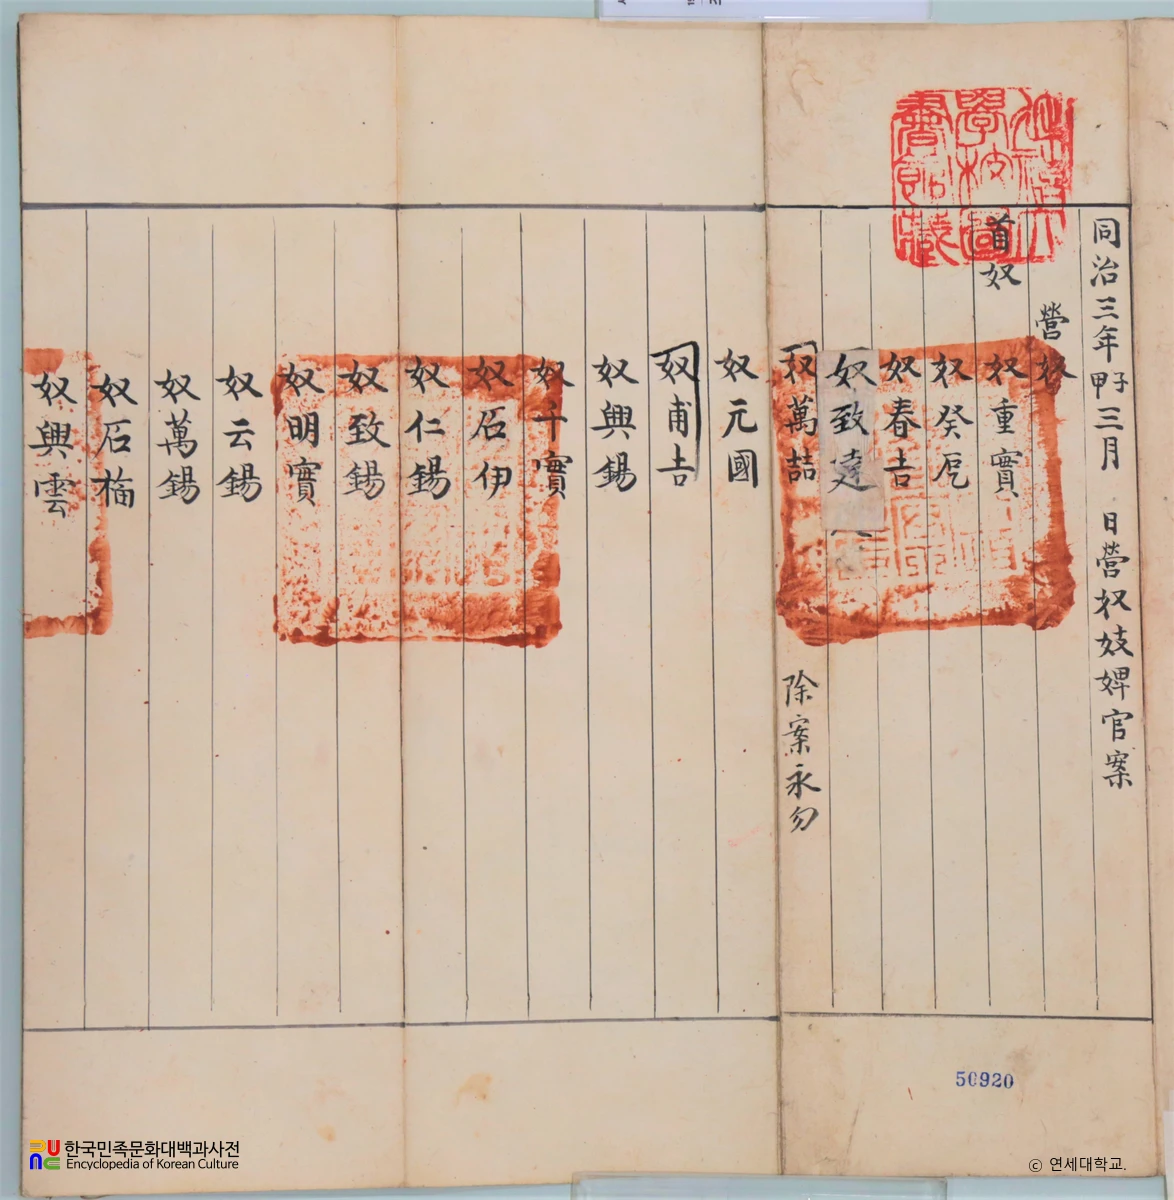 同治三年甲子三月 日營奴妓婢官案
營奴
首奴
奴重實
奴癸巵
奴春吉
奴致達
奴萬喆 除案永勿
奴元國
奴甫吉
奴興錫
奴千實
奴石伊
奴仁錫
奴致錫
奴明實
奴云錫
奴萬錫
奴石
奴興雲
50920
한국민족문화대백과사전
Encyclopedia of Korean Culture
ⓒ 연세대학교.